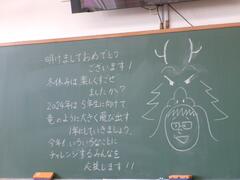 明けましておめでとう
ございます!
冬休みは楽しくすごせ
ましたか?
2024年は5年生に向けて
竜のように大きく飛び出す
1年にしていきましょう。
今年もいろいろなことに
チャレンジするみんなを
応援します!!